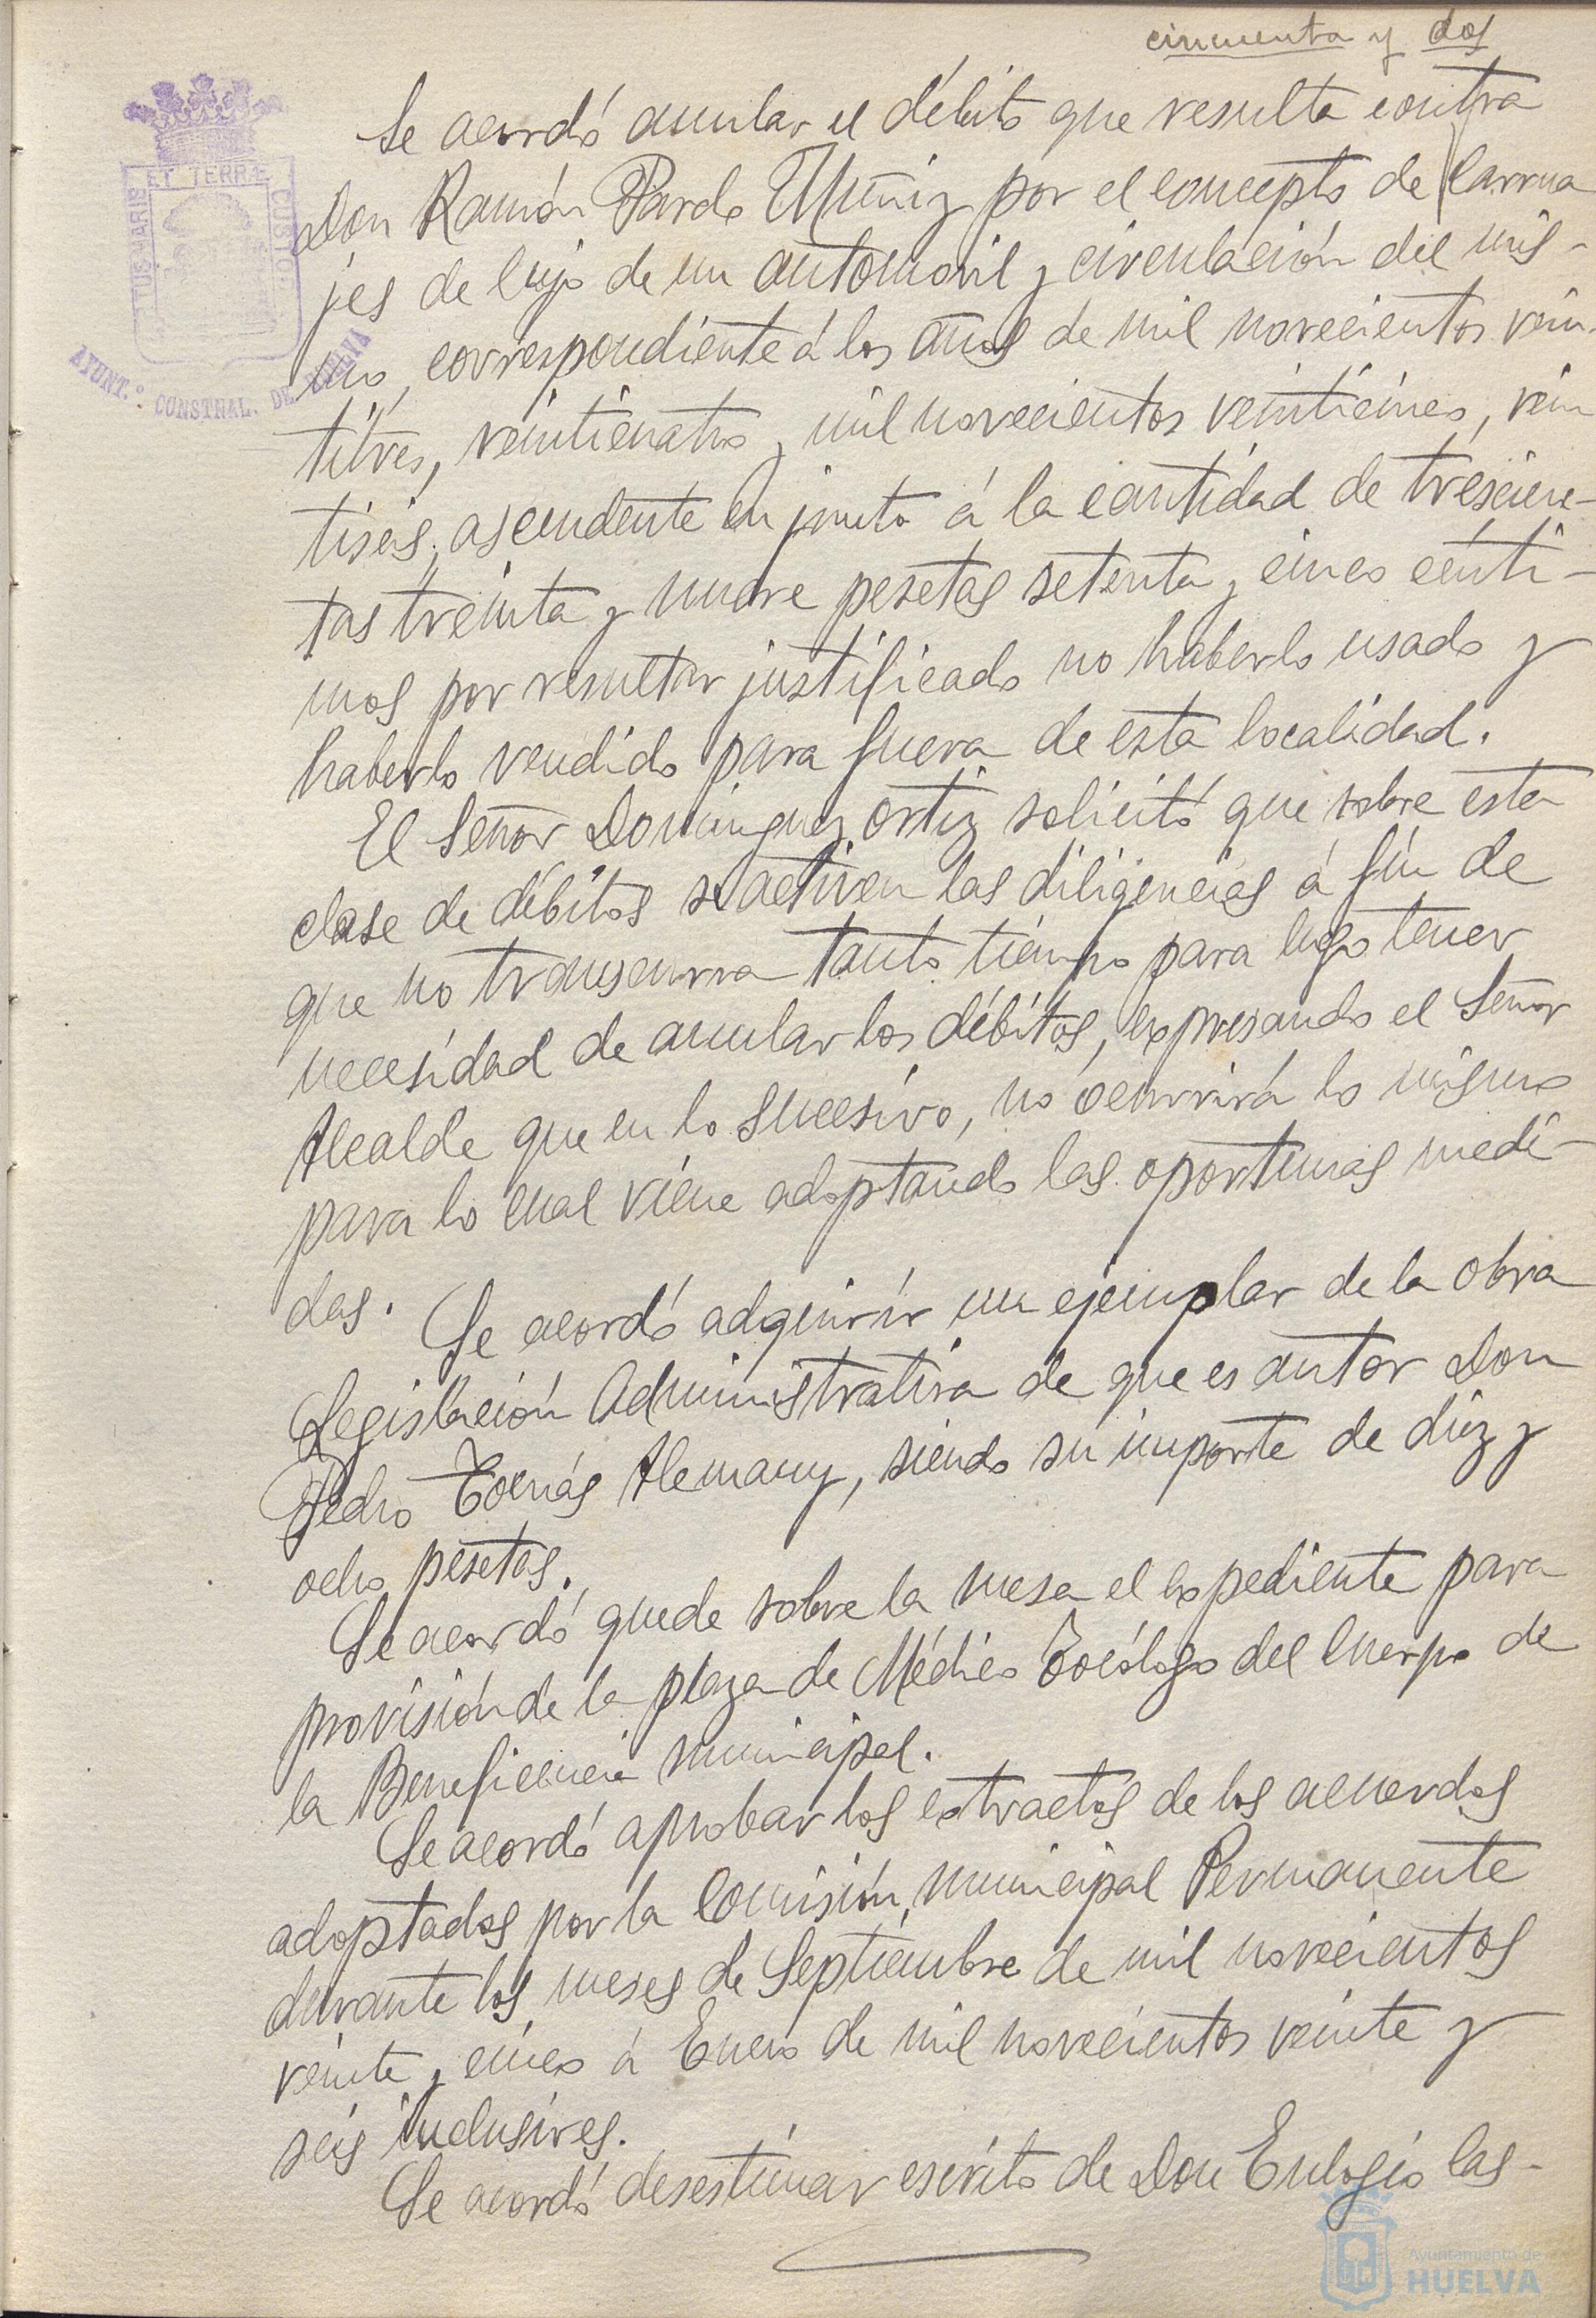 cincuenta y dos
Se acordó anular el débito que resulta contra
Don Ramón Pardo Muñiz por el concepto de Carrua
jes de lujo de un automóvil y circulación del mis-
mo, correspondiente á los años de mil novecientos vein-
titrés, veinticuatro y mil novecientos veinticinco, vein
tiseis, ascendente en junto á la cantidad de trescien-
tas treinta y nueve pesetas setenta y cinco cénti-
mos por resultar justificado no haberlo usado y
haberlo vendido para fuera de esta localidad.
El Señor Dominguez Ortiz solicitó que sobre esta
clase de débitos se activen las diligencias á fin de
que no transcurra tanto tiempo para luego tener
necesidad de anular los débitos, expresando el Señor
Alcalde que en lo sucesivo, no ocurrirá lo mismo
para lo cual viene adoptando las oportunas medi-
das.
Se acordó adquirir un ejemplar de la obra
Legislación Administrativa de que es autor Don
Pedro Tomás Alemany, siendo su importe de diez y
ocho pesetas.
Se acordó quede sobre la mesa el expediente para
provisión de la plaza de Médico Tocólogo del Cuerpo de
la Beneficencia municipal.
Se acordó aprobar los extractos de los acuerdos
adoptados por la Comisión municipal Permanente
durante los meses de Septiembre de mil novecientos
veinte y cinco á Enero de mil novecientos veinte y
seis inclusives.
Se acordó desestimar escrito de Don Eulogio Cas-
PORTUS MARIS ET TERRÆ CUSTO
AYUNT.º CONSTNAL. DE HUELVA
Ayuntamiento de
HUELVA